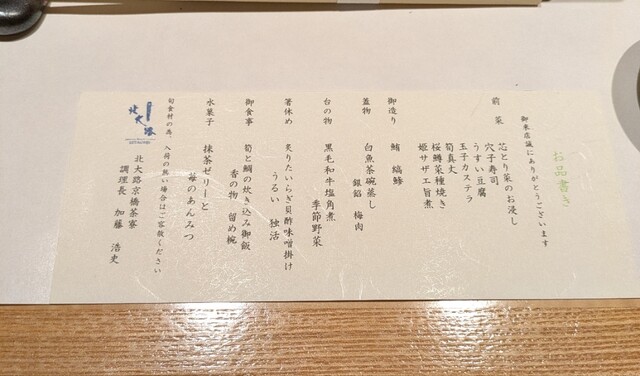 お品書き
御来店誠にありがとうございます
前菜
芯とり菜のお浸し
穴子寿司
うすい豆腐
玉子カステラ
筍真丈
桜鱒菜種焼き
姫サザエ旨煮
御造り
鮪 縞鯵
蓋物
白魚茶碗蒸し
銀餡 梅肉
台の物
黒毛和牛塩角煮
季節野菜
箸休め
炙りたいらぎ貝酢味噌掛け
うるい 独活
御食事
筍と鯛の炊き込み御飯
香の物 留め椀
水菓子
抹茶ゼリーと
苺のあんみつ
旬食材の為、入荷の無い場合はご容赦ください
北大路
北大路京橋茶寮
調理長 加藤 浩史